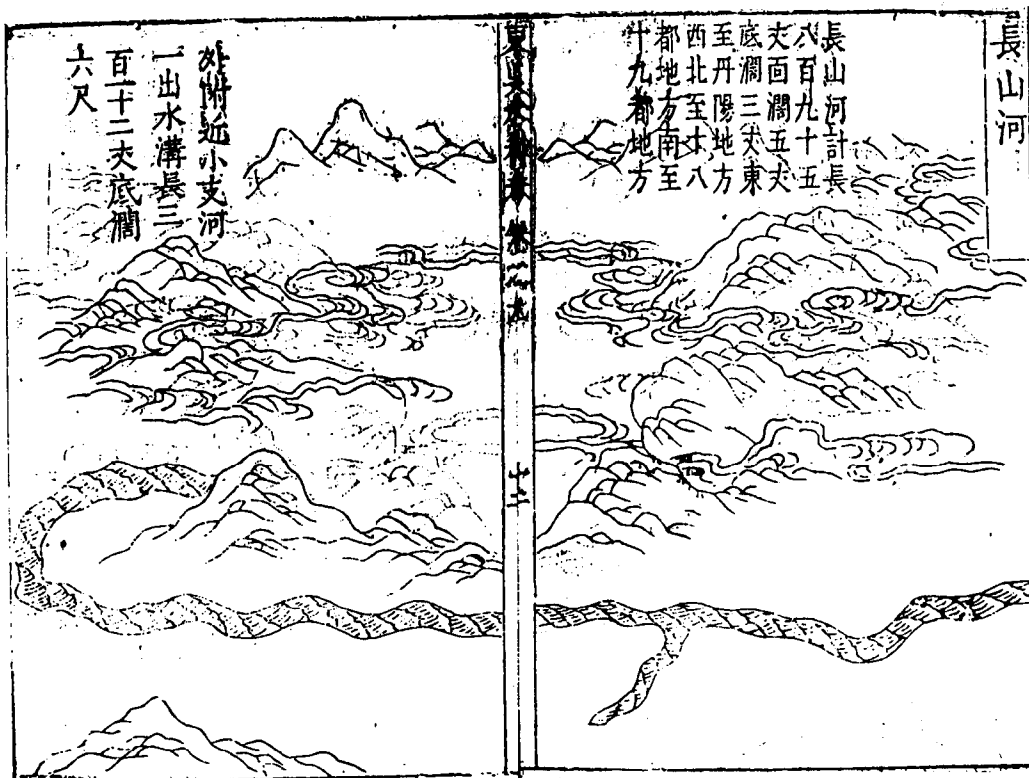 長山河
長山河計長
八百九十五
丈面濶五丈
底濶三丈東
至丹陽地方
西北至十八
都地方南至
十九都地方
東吳水利考 卷
十二
附近小支河
一出水溝長三
百十二丈底濶
六尺